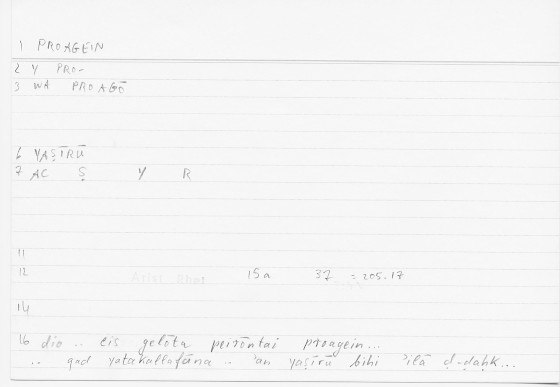 1 PROAGEIN
2 Y PRO-
3 WA PROAGŌ
6 YAṢĪRŪ
7 AC Ṣ Y R
11
12 15a 37 = 205.17
14
16 dio .. eis gelōta peirōntai proagein...
.. qad yatakallafūna .. ʾan yaṣīrū bihi ʾilā ḍ-ḍaḥk...